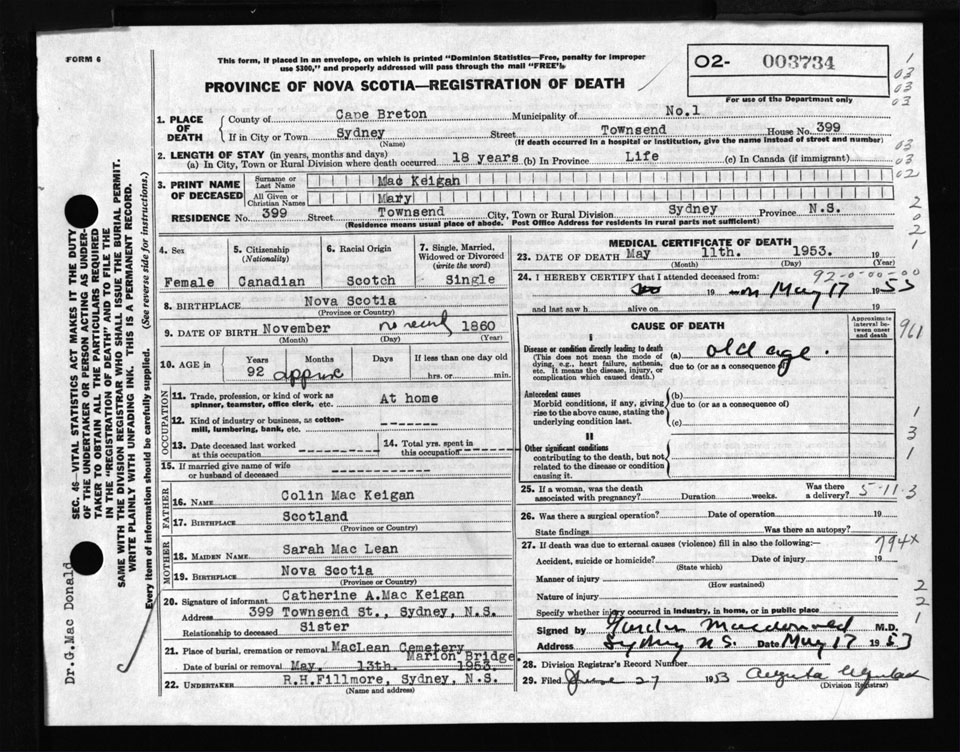 FORM 6
This form, if placed in an envelope, on which is printed "Dominion Statistics—Free, penalty for improper
use $300," and properly addressed will pass through the mail "FREE".
02- 003734
For use of the Department only
PROVINCE OF NOVA SCOTIA—REGISTRATION OF DEATH
1. PLACE OF DEATH
County of Cape Breton Municipality of No.1
If in City or Town Sydney Street Townsend House No. 399
(Name) (If death occurred in a hospital or institution, give the name instead of street and number)
2. LENGTH OF STAY (in years, months and days)
(a) In City, Town or Rural Division where death occurred 18 years (b) In Province Life (c) In Canada (if immigrant)
3. PRINT NAME OF DECEASED
Surname or Last Name Mac Keigan
All Given or Christian Names Mary
RESIDENCE No. 399 Street Townsend City, Town or Rural Division Sydney Province N.S.
(Residence means usual place of abode. Post Office Address for residents in rural parts not sufficient)
4. Sex Female
5. Citizenship (Nationality) Canadian
6. Racial Origin Scotch
7. Single, Married, Widowed or Divorced (write the word) Single
8. BIRTHPLACE Nova Scotia
(Province or Country)
9. DATE OF BIRTH November no record 1860
(Month) (Day) (Year)
10. AGE in Years Months Days If less than one day old
92 approx hrs. or min.
OCCUPATION
11. Trade, profession or kind of work as spinner, teamster, office clerk, etc. At home
12. Kind of industry or business, as cotton-mill, lumbering, bank, etc. -------
13. Date deceased last worked at this occupation
14. Total yrs. spent in this occupation
15. If married give name of wife or husband of deceased
FATHER
16. NAME Colin Mac Keigan
17. BIRTHPLACE Scotland
(Province or Country)
MOTHER
18. MAIDEN NAME Sarah Mac Lean
19. BIRTHPLACE Nova Scotia
(Province or Country)
20. Signature of informant Catherine A.Mac Keigan
Address 399 Townsend St., Sydney, N.S.
Relationship to deceased Sister
21. Place of burial, cremation or removal MacLean Cemetery
Marion Bridge
Date of burial or removal May. 13th. 1953.
22. UNDERTAKER R.H.Fillmore, Sydney, N.S.
(Name and address)
MEDICAL CERTIFICATE OF DEATH
23. DATE OF DEATH May 11th. 1953. 19
(Month) (Day) (Year)
24. I HEREBY CERTIFY that I attended deceased from:
92-0-00-00
19 on May 17 1953
and last saw h alive on 19
CAUSE OF DEATH
Approximate interval between onset and death
I
Disease or condition directly leading to death
(This does not mean the mode of dying, e.g., heart failure, asthenia, etc. It means the disease, injury, or complication which caused death.)
(a) old age.
due to (or as a consequence of)
Antecedent causes
Morbid conditions, if any, giving rise to the above cause, stating the underlying condition last.
(b)
due to (or as a consequence of)
(c)
II
Other significant conditions
contributing to the death, but not related to the disease or condition causing it.
25. If a woman, was the death associated with pregnancy? Duration weeks. Was there a delivery? 5-11.3
26. Was there a surgical operation? Date of operation 19
State findings Was there an autopsy?
27. If death was due to external causes (violence) fill in also the following:— 794x
Accident, suicide or homicide? Date of injury 19
(State which)
Manner of injury
(How sustained)
Nature of injury
Specify whether injury occurred in industry, in home, or in public place
Signed by Gordon Macdonald M.D.
Address Sydney N.S. Date May 17 1953
28. Division Registrar's Record Number
29. Filed June 27 1953
(Division Registrar)
SEC. 46—VITAL STATISTICS ACT MAKES IT THE DUTY
OF THE UNDERTAKER OR PERSON ACTING AS UNDER-
TAKER TO OBTAIN ALL THE PARTICULARS REQUIRED
IN THE "REGISTRATION OF DEATH" AND TO FILE THE
SAME WITH THE DIVISION REGISTRAR WHO SHALL ISSUE THE BURIAL PERMIT.
WRITE PLAINLY WITH UNFADING INK. THIS IS A PERMANENT RECORD.
Every item of information should be carefully supplied. (See reverse side for instructions.)
Dr.G.Mac Donald
1
03
03
03
03
02
2
0
2
1
961
1
3
1
2
2
1